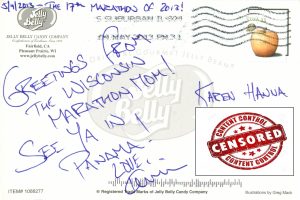 5/4/2013 - THE 17th MARATHON OF 2013!
Jelly Belly
JELLY BELLY CANDY COMPANY
Fairfield, CA
Pleasant Prairie, WI
www.jellybelly.com
S SUBURBAN IL 604
04 MAY 2013 PM 3 L
GREETINGS FROM
THE WISCONSIN
MARATHON TOM!
SEE YA IN
PANAMA!
LOVE,
KAREN HANNA
Jelly
Belly
CONTENT CONTROL
CENSORED
CONTENT CONTROL
ITEM# 1088277
® Registered Trade Marks of Jelly Belly Candy Company
Illustrations by Greg Mack